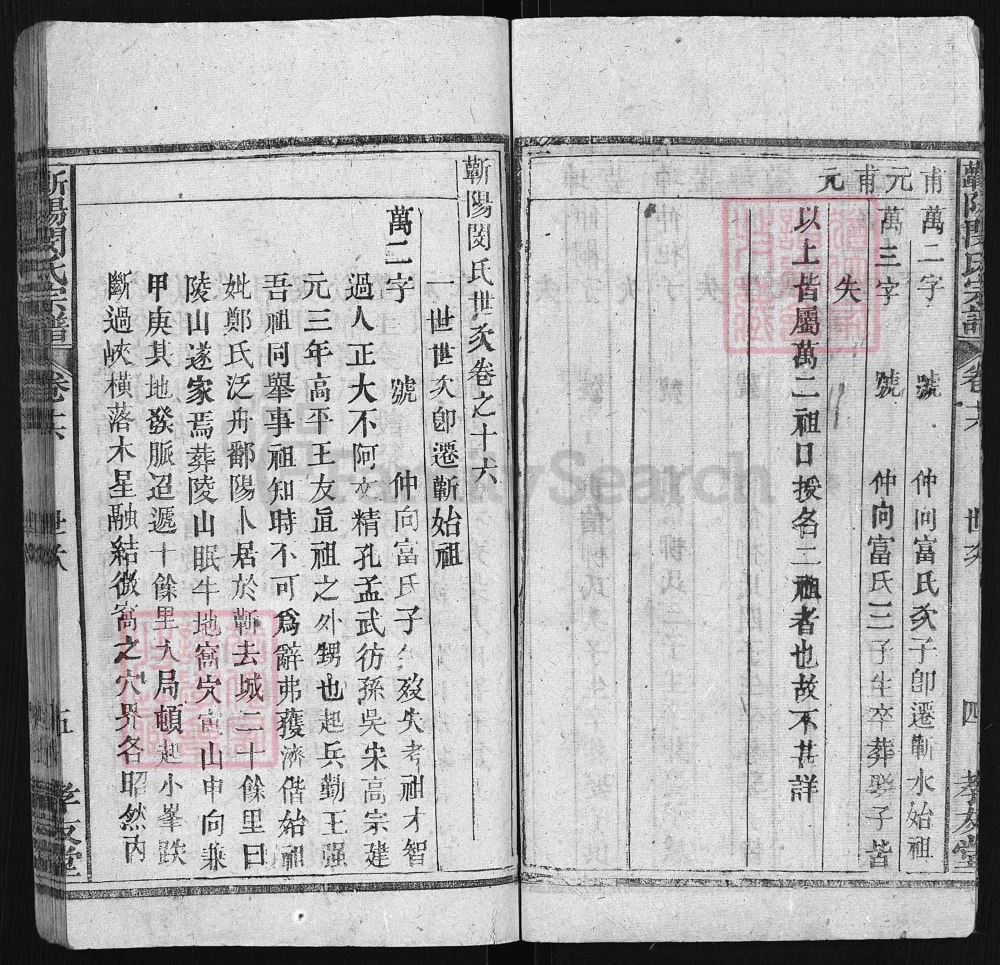 蘄陽閔氏宗譜 卷十六 世次 四 孝友堂
甫元 萬二字 號 仲向富氏次子卽遷蘄水始祖
甫元 萬三字 號 仲向富氏三子生卒葬娶子皆
失
以上皆屬萬二祖口授名二祖者也故不甚詳
蘄陽閔氏世次卷之十六
一世世次卽遷蘄始祖
萬二字 號 仲向富氏子生歿失考祖才智
過人正大不阿文精孔孟武彷孫吳宋高宗建
元三年高平王友眞祖之外甥也起兵勤王强
吾祖同舉事祖知時不可爲辭弗獲濟偕始祖
妣鄭氏泛舟鄱陽卜居於蘄去城二十餘里曰
陵山遂家焉葬陵山眠牛地窩穴 山申向兼
甲庚其地發脈迢遞十餘里入局頓起小峯跌
斷過峽橫落木星融結微窩之穴界各昭然內
蘄陽閔氏宗譜 卷十六 世次 五 孝友堂
FamilySearch